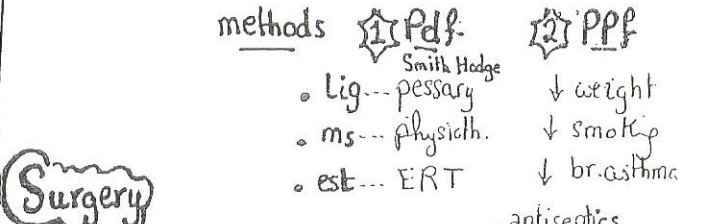 methods 1 Pdf. 2 PPf
Smith Hodge
• Lig... pessary ↓ weight
• ms... physioth. ↓ smoking
• est... ERT ↓ br.asthma
Surgery
antiseptics